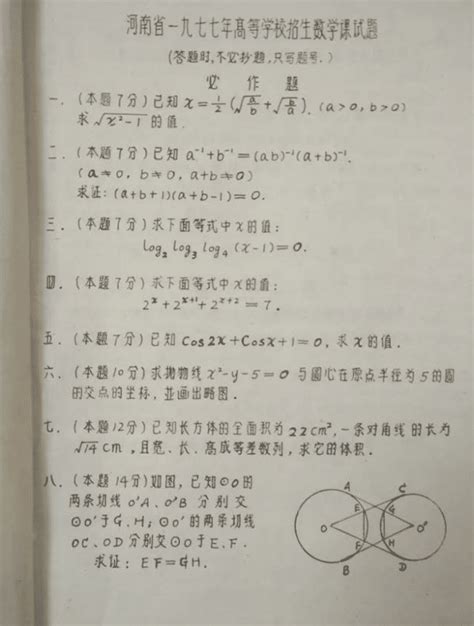 河南省一九七七年高等学校招生数学课试题
(答题时,不必抄题,只写题号.)
必 作 题
一. (本题7分)已知 x=½(√(a/b)+√(b/a)). (a>0, b>0)
求 √(x²-1) 的值.
二. (本题7分)已知 a⁻¹+b⁻¹=(ab)⁻¹(a+b)⁻¹.
(a≠0, b≠0, a+b≠0)
求证: (a+b+1)(a+b-1)=0.
三. (本题7分)求下面等式中x的值:
log₂ log₃ log₄ (x-1)=0.
四. (本题7分)求下面等式中x的值:
2ˣ+2ˣ⁺¹+2ˣ⁺²=7.
五. (本题7分)已知 Cos2x+Cosx+1=0, 求x的值.
六. (本题10分)求抛物线 x²-y-5=0 与圆心在原点半径为5的圆
的交点的坐标, 並画出略图.
七. (本题12分)已知长方体的全面积为22cm², 一条对角线的长为
√14 cm, 且宽、长、高成等差数列, 求它的体积.
八. (本题14分)如图, 已知⊙O的
两条切线 O'A、O'B 分别交
⊙O'于G、H; ⊙O'的两条切线
OC、OD分别交⊙O于E、F.
求证: EF=GH.
A C
E G
O O'
F H
B D